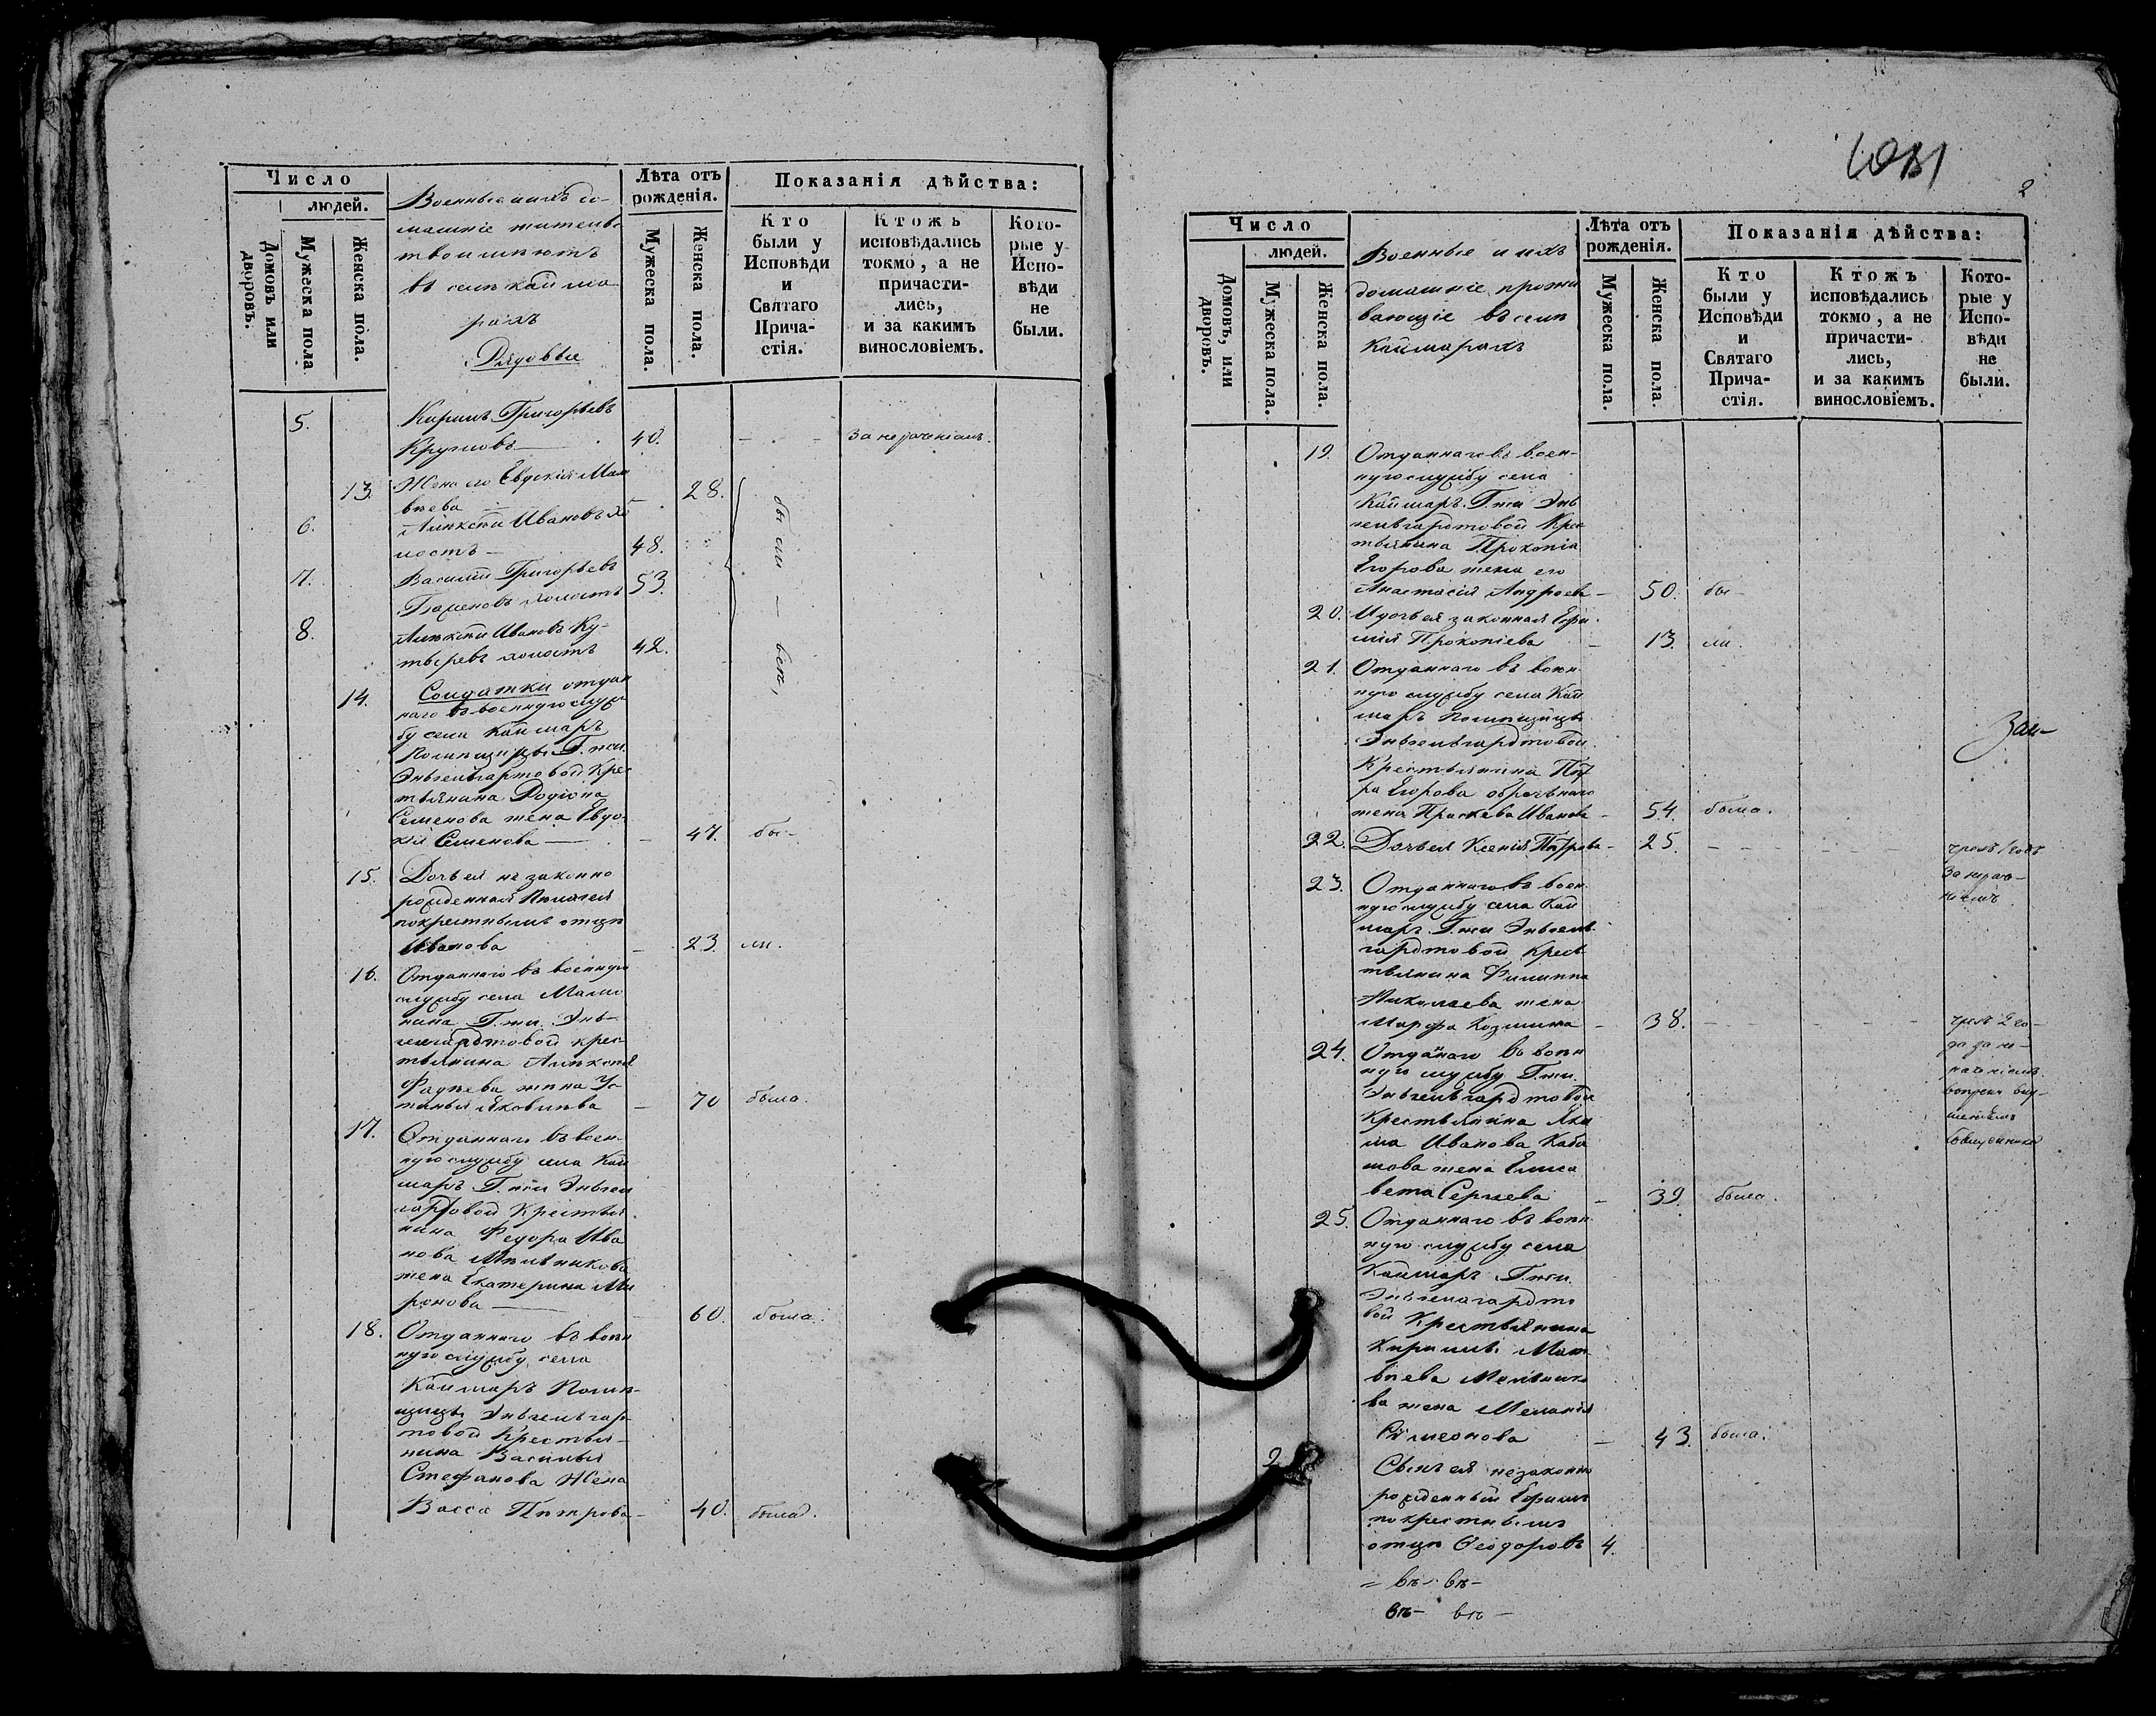 Число
людей.
Домовъ или дворовъ.
Мужеска пола
Женска пола.
Военные и ихъ до-
машніе жительс
тво имѣютъ
въ селѣ Кайма
рахъ
Рядовые
Лѣта отъ
рожденія.
Мужеска пола.
Женска пола.
Показанія дѣйства:
Кто
были у
Исповѣди
и
Святаго
Прича-
стія.
Ктожъ
исповѣдались
токмо, а не
причасти-
лись,
и за какимъ
винословіемъ.
Кото-
рые у
Испо-
вѣди
не
были.
5. Кирилъ Григорьевъ
Крупновъ — 40. - - - За нераченіемъ.
13. Жена его Евдокія Мат
вѣева — 28. были — всѣ,
6. Алексѣй Ивановъ хо
лостъ — 48.
7. Василій Григорьевъ
холостъ 53.
8. Алексѣй Ивановъ Ку-
тыревъ холостъ 42.
14. Солдатки отдан
наго въ военную служ
бу села Каймаръ
Помѣщицы Г.жи
Энгельгартовой Крес
тьянина Родіона
Семенова жена Евдо
кія Семенова — 47. бы-
15. Дочь ея не законно
рожденная Пелагея
по крестнымъ отцѣ
Иванова — 23. ли.
16. Отданнаго въ военную
службу села
Г.жи Эн-
гельгардтовой крес
тьянина Алексѣя
Фадѣева жена
Яковлева — 70 была.
17. Отданнаго въ воен-
ную службу села Кай
маръ Г.жи Энгел
гардовой Крестья
нина Федора Ива
нова Мельникова
жена Екатерина Ми
ронова — 60. была.
18. Отданнаго въ воен
ную службу села
Каймаръ Помѣ-
щицы Энгельгар
товой Крестья-
нина Василья
Стефанова Жена
Васса Петрова — 40. была.
2
Число
людей.
Домовъ, или дворовъ.
Мужеска пола.
Женска пола.
Военные и ихъ
домашніе прожи
вающіе въ селѣ
Каймарахъ
Лѣта отъ
рожденія.
Мужеска пола.
Женска пола.
Показанія дѣйства:
Кто
были у
Исповѣди
и
Святаго
Прича-
стія.
Ктожъ
исповѣдались
токмо, а не
причасти-
лись,
и за какимъ
винословіемъ.
Кото-
рые у
Испо-
вѣди
не
были.
19. Отданнаго въ воен-
ную службу села
Каймаръ Г.жи Эн
гельгардтовой Крес
тьянина Прокопія
Егорова жена его
Анастасія Андреева — 50. бы-
20. И дочь ея законная
Прокопіева — 13. ли.
21. Отданнаго въ воен
ную службу села Кай
маръ Помѣщицы
Энгельгардтовой
Крестьянина Пет
ра Егорова
жена Праскева Иванова — 54. была.
22. Дочь ея Ксенія Петрова — 25. - - - - чрезъ 1 годъ
За нерач-
ніемъ
23. Отданнаго въ воен
ную службу села Кай
маръ Г.жи Энгель
гардтовой Крес
тьянина Филиппа
Николаева жена
Марфа Козмина — 38. - - - - чрезъ 2 го-
да за не-
раченіемъ
24. Отданаго въ воен
ную службу Г.жи
Энгельгардтовой
Крестьянина
Иванова
жена Елиса
вета Сергѣева — 39. была.
25. Отданнаго въ воен
ную службу села
Каймаръ Г.жи
Энгельгардто
вой Крестьянина
Кирилы Мат
вѣева Мельнико
ва жена Меланія
Симеонова — 43. была.
Сынъ ея незаконно
рожденный
по крестнымъ
отцѣ Ѳеодоровъ 4.